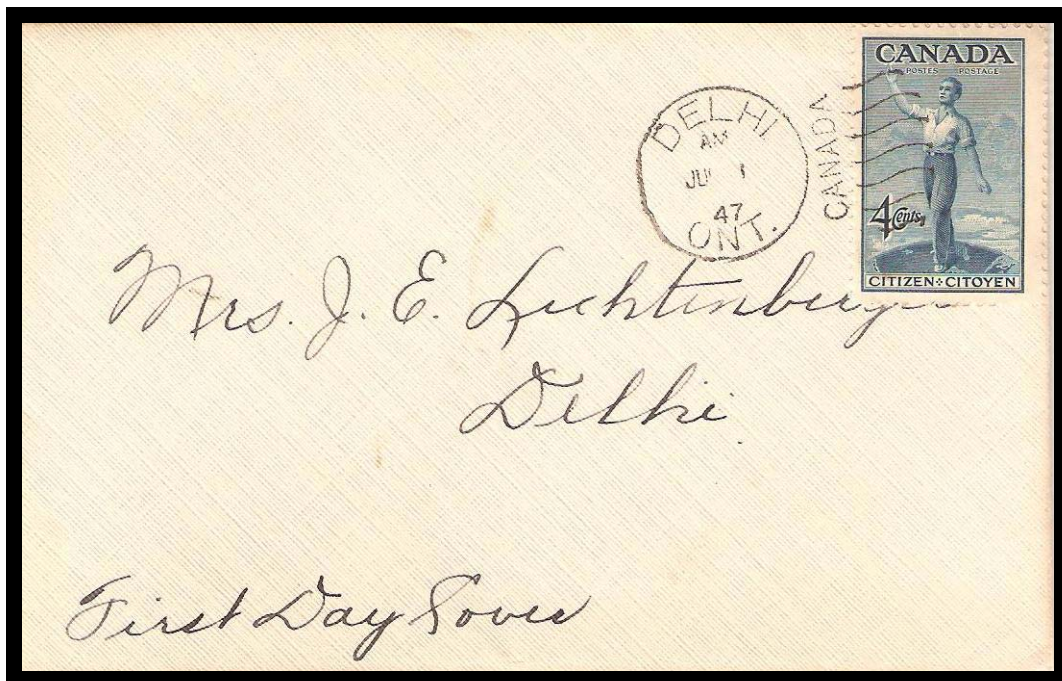 CANADA
POSTES POSTAGE
4 Cents
CITIZEN CITOYEN
DELHI
AM
JU 1
47
ONT.
CANADA
Mrs. J. E. Lichtenberger
Delhi
First Day Cover